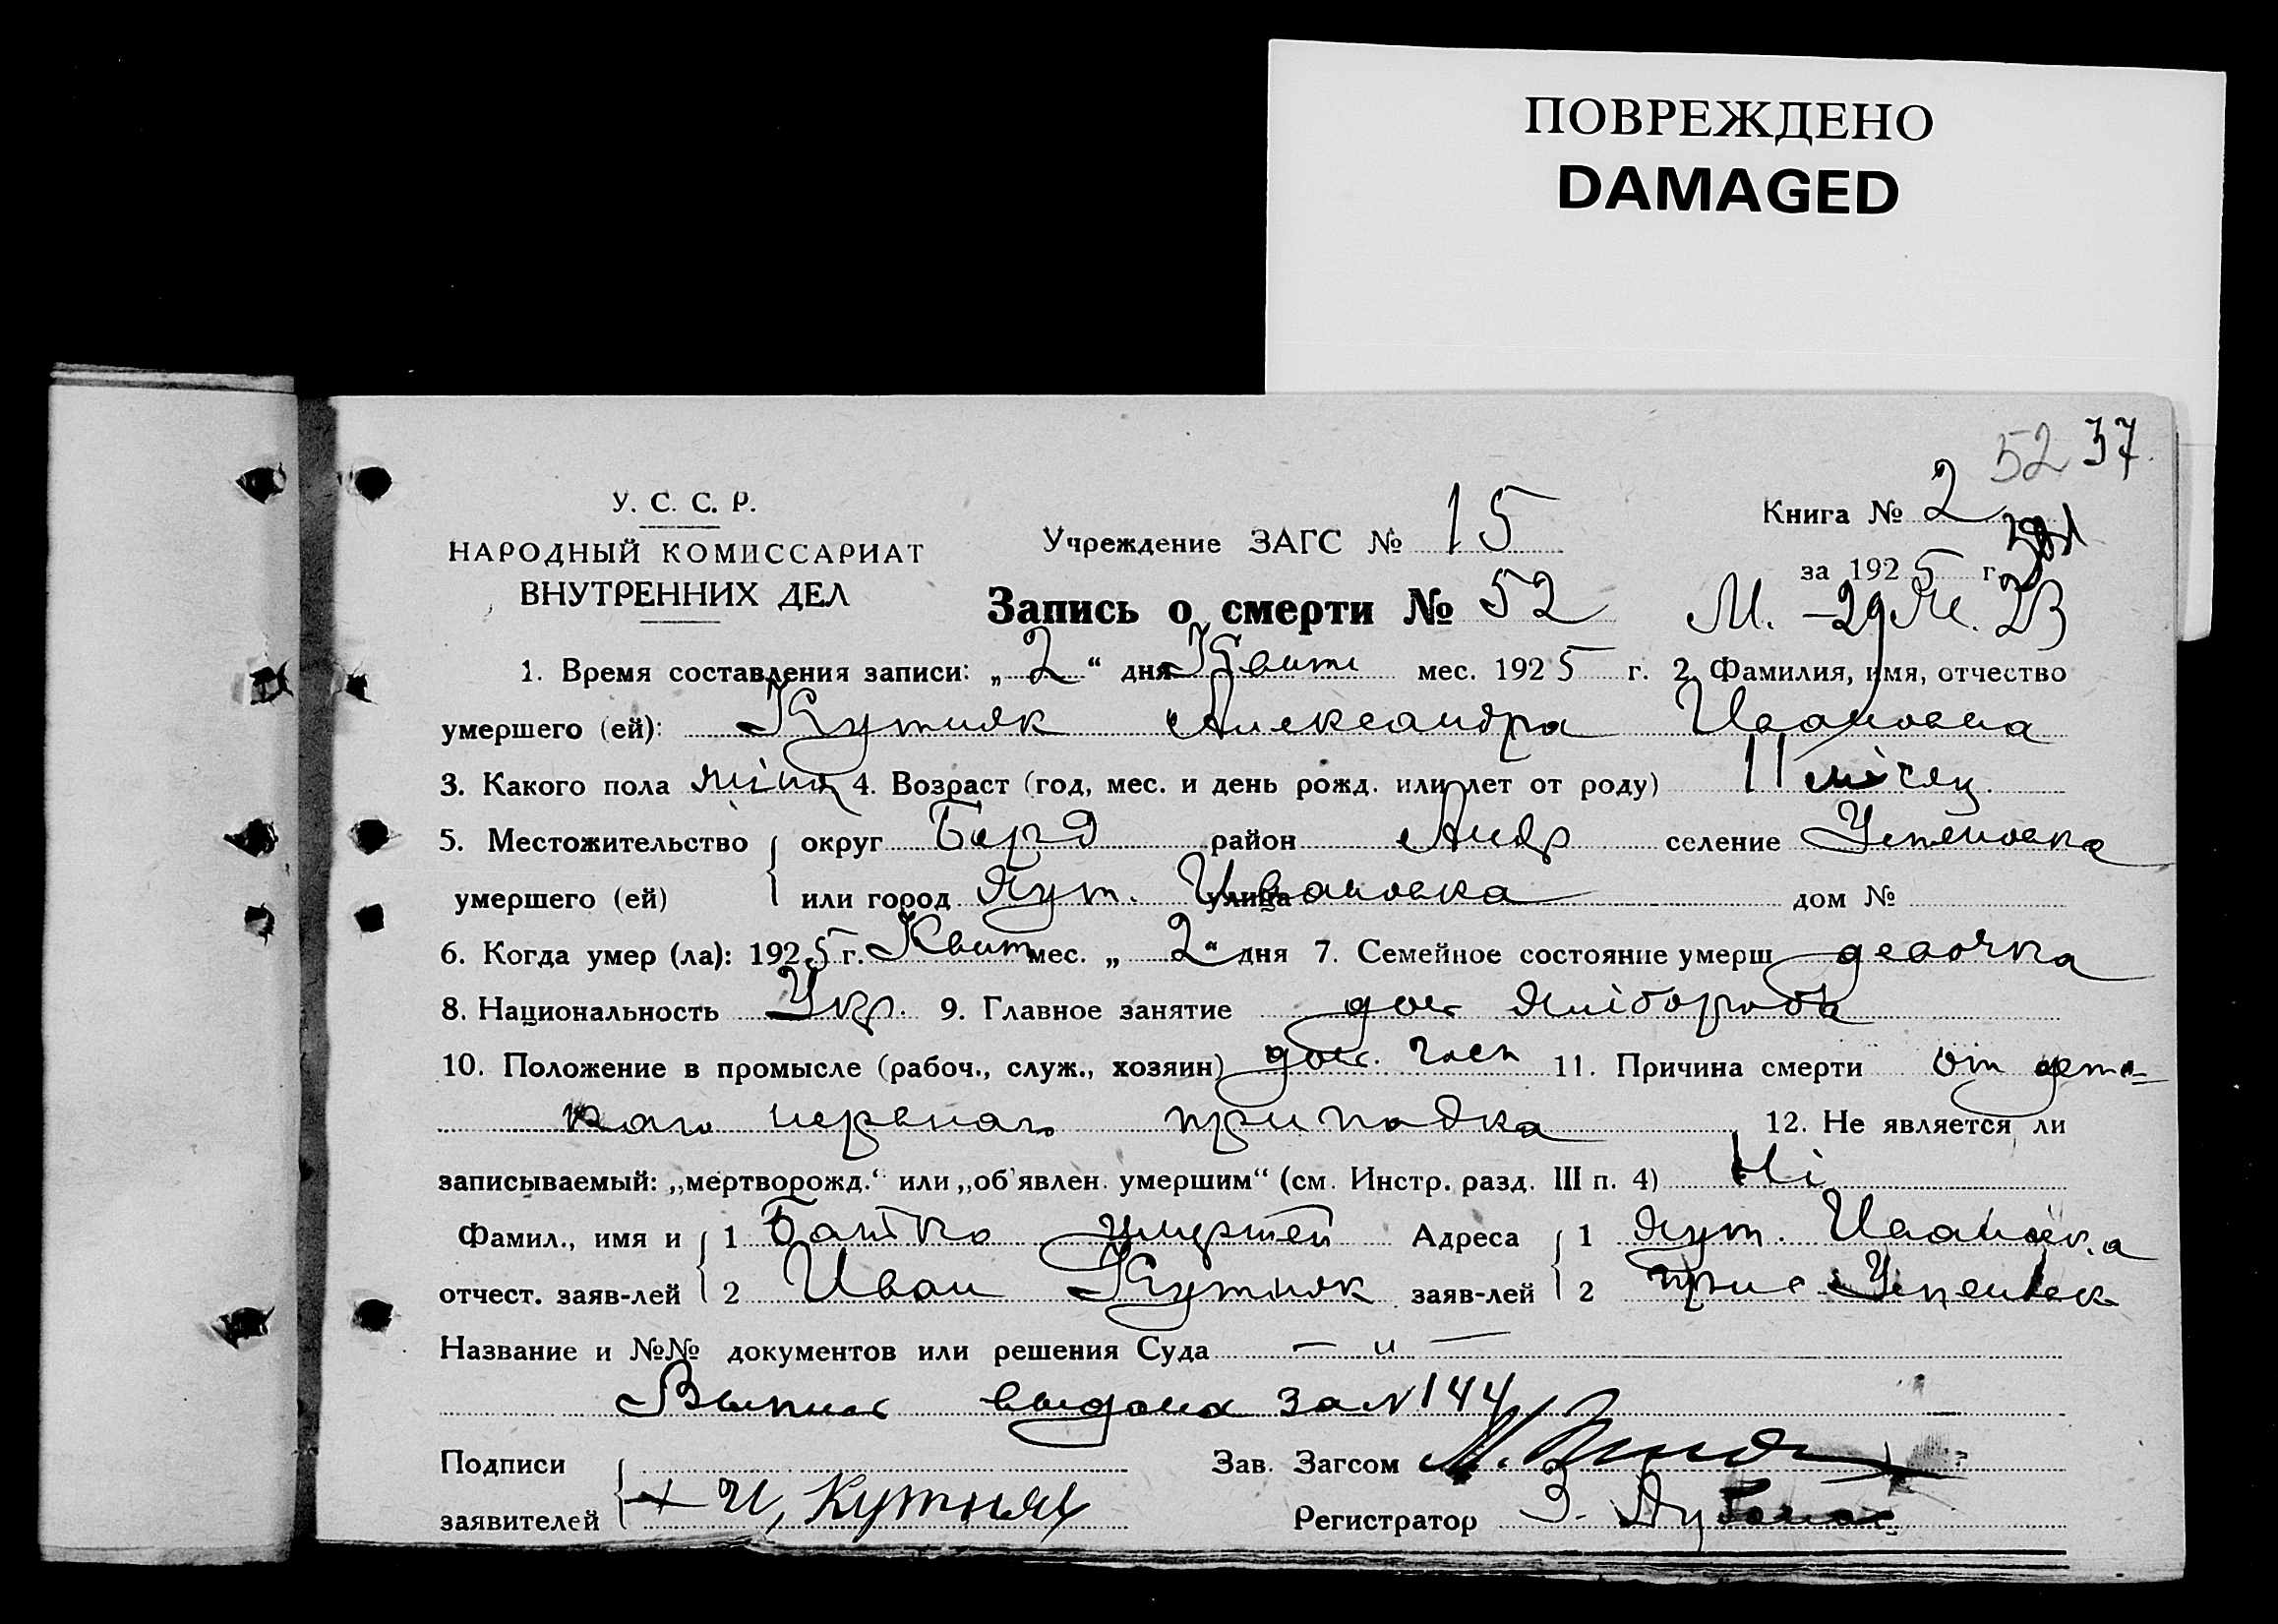 ПОВРЕЖДЕНО
DAMAGED
52 37.
У. С. С. Р.
НАРОДНЫЙ КОМИССАРИАТ
ВНУТРЕННИХ ДЕЛ
Учреждение ЗАГС № 15
Книга № 2
за 1925 г.
Запись о смерти № 52
1. Время составления записи: „2“ дня Квітн мес. 1925 г. 2. Фамилия, имя, отчество
умершего (ей): Кутняк Александра Ивановна
3. Какого пола жіноч 4. Возраст (год, мес. и день рожд. или лет от роду) 11 місяц.
5. Местожительство округ Берд район Андр селение Успеновка
умершего (ей) или город Хут. улица Ивановка дом №
6. Когда умер (ла): 1925 г. Квітн мес. „2“ дня 7. Семейное состояние умерш девочка
8. Национальность Укр. 9. Главное занятие дом хлібороба
10. Положение в промысле (рабоч., служ., хозяин) 11. Причина смерти от детс-
кого нервного припадка 12. Не является ли
записываемый: „мертворожд.“ или „об'явлен. умершим“ (см. Инстр. разд. III п. 4) Ні
Фамил., имя и 1 Батько умершей Адреса 1 Хут. Ивановка
отчест. заяв-лей 2 Иван Кутняк заяв-лей 2
Название и №№ документов или решения Суда — " —
Выпись выдана за № 144
Подписи Зав. Загсом
заявителей + И, Кутняк Регистратор З.